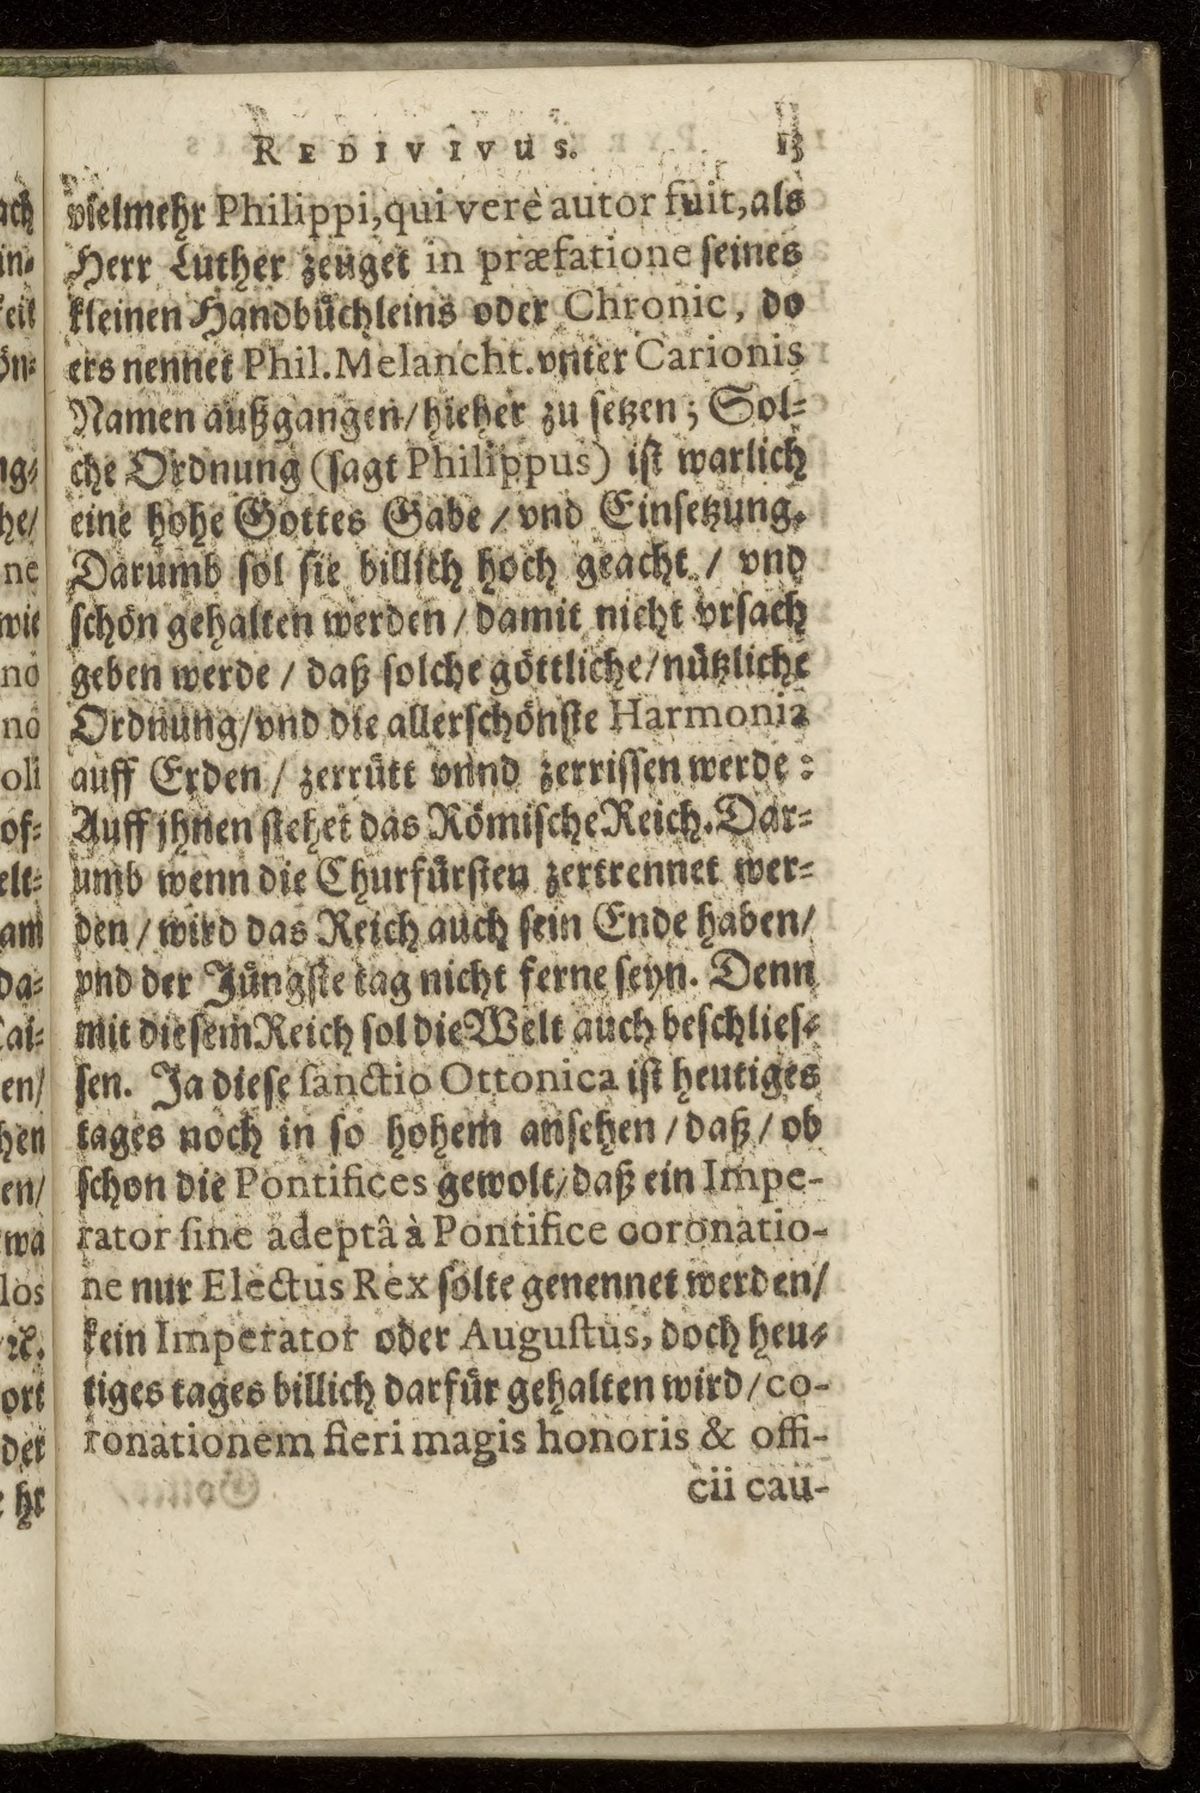 REDIVIVUS. 13
vielmehr Philippi, qui verè autor fuit, als
Herr Luther zeuget in præfatione seines
kleinen Handbüchleins oder Chronic, do
ers nennet Phil. Melancht. vnter Carionis
Namen außgangen/ hieher zu setzen; Sol-
che Ordnung (sagt Philippus) ist warlich
eine hohe Gottes Gabe / vnd Einsetzung.
Darumb sol sie billich hoch geacht / vnd
schön gehalten werden / damit nicht vrsach
geben werde / daß solche göttliche/ nützliche
Ordnung/ vnd die allerschönste Harmonia
auff Erden / zerrütt vnnd zerrissen werde:
Auff jhnen stehet das Römische Reich. Dar-
umb wenn die Churfürsten zertrennet wer-
den / wird das Reich auch sein Ende haben/
vnd der Jüngste tag nicht ferne seyn. Denn
mit diesem Reich sol die Welt auch beschlies-
sen. Ja diese sanctio Ottonica ist heutiges
tages noch in so hohem ansehen / daß / ob
schon die Pontifices gewolt/ daß ein Impe-
rator sine adeptâ à Pontifice coronatio-
ne nur Electus Rex solte genennet werden/
kein Imperator oder Augustus, doch heu-
tiges tages billich darfür gehalten wird / co-
ronationem fieri magis honoris & offi-
cii cau-